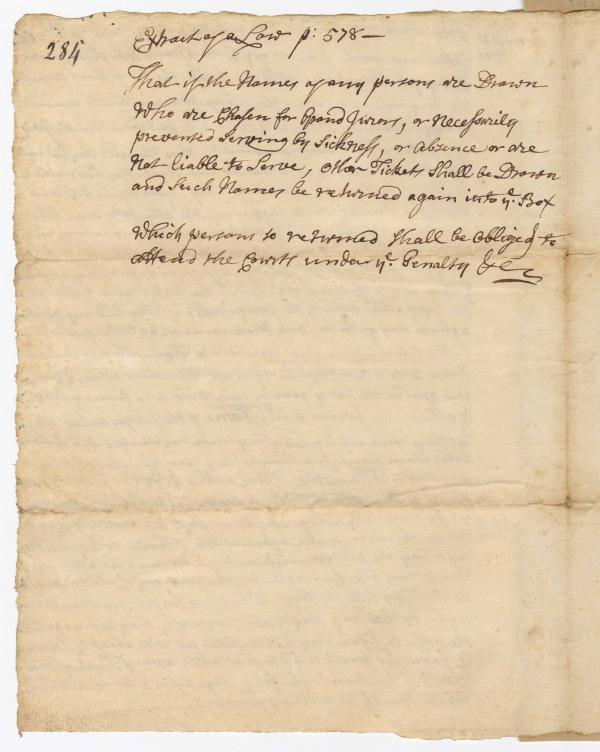 284
Extract of a Law p: 578 —
That if the Names of any persons are Drawn
Who are Chosen for Grand Jurors, or necessarily
prevented Serving by Sickness, or absence or are
not liable to Serve, other Tickets Shall be Drawn
and Such Names be returned again into yᵉ Box
Which persons so returned Shall be obliged to
attend the Courts under yᵉ Penalty &c